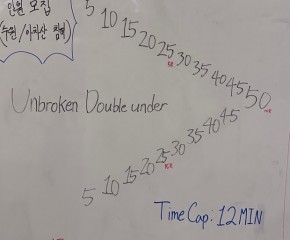 인원 모집
5 10 15 20 25 30 35 40 45 50
Unbroken Double under
5 10 15 20 25 30 35 40 45
Time Cap: 12 MIN